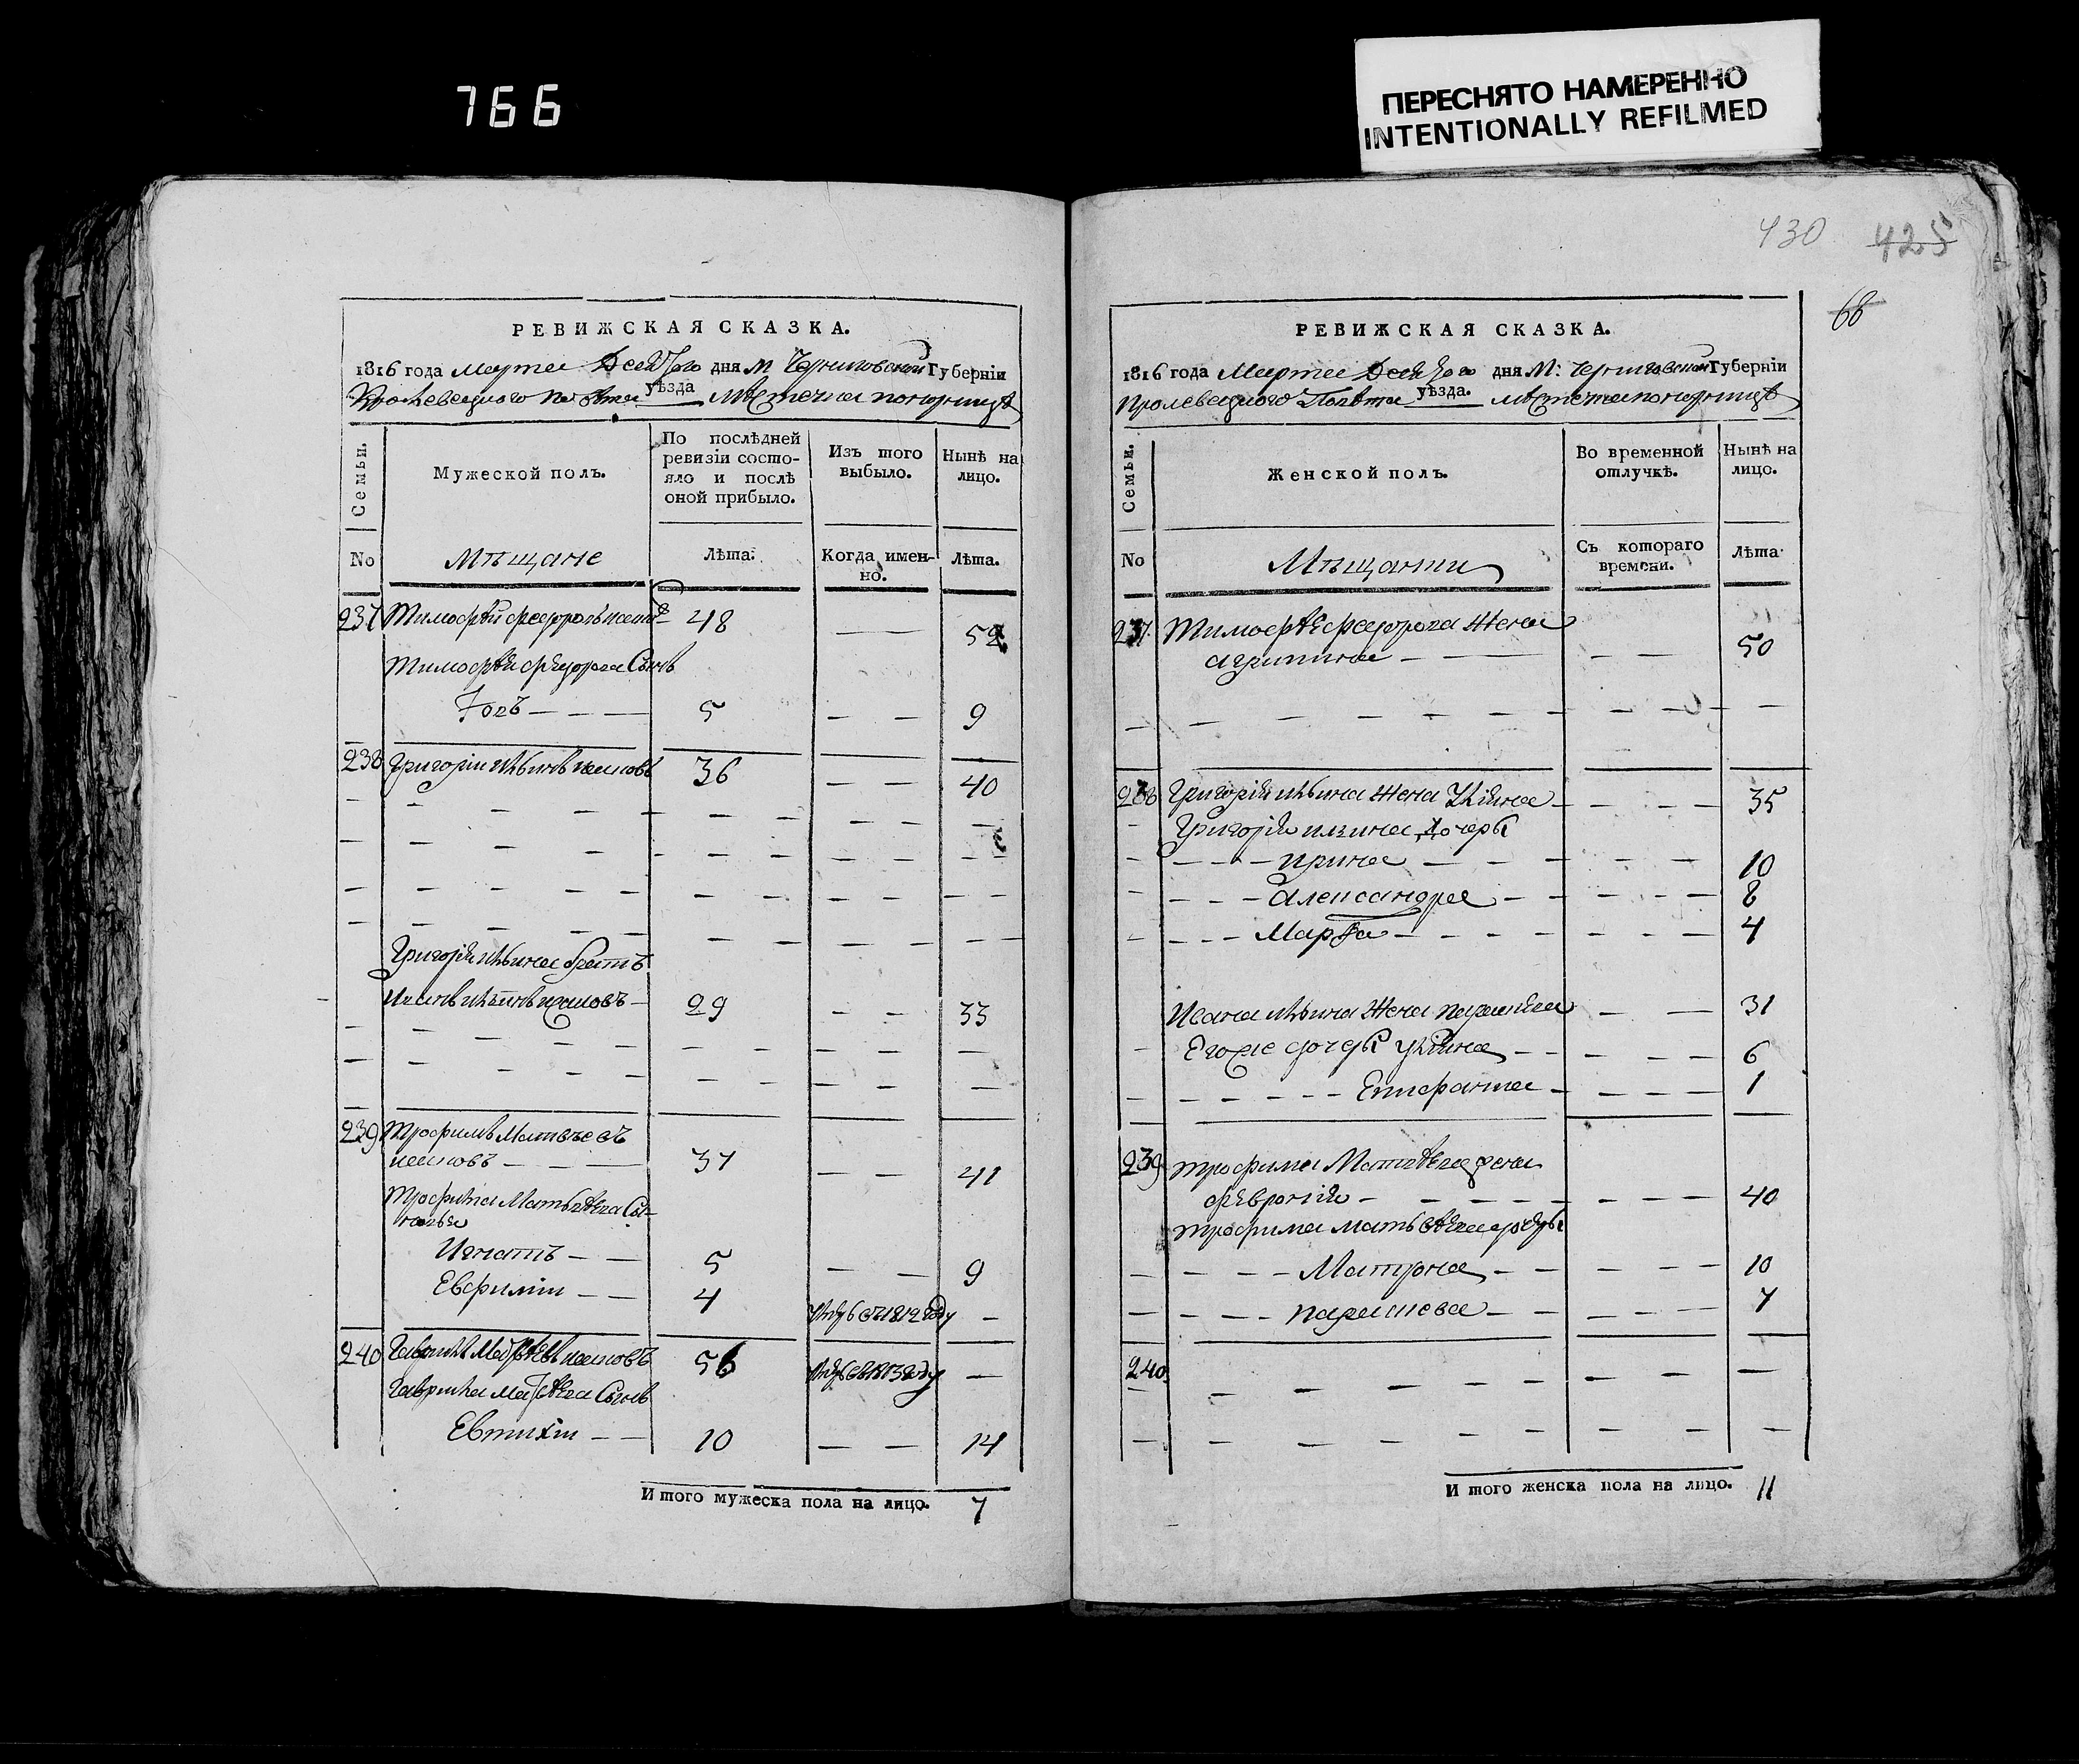 766
ПЕРЕСНЯТО НАМЕРЕННО
INTENTIONALLY REFILMED
РЕВИЖСКАЯ СКАЗКА.
1816 года Марта дня М Черниговской Губерніи
уѣзда Мѣстечка
Семьи.
Мужеской полъ.
По послѣдней ревизіи состояло и послѣ оной прибыло.
Изъ того выбыло.
Нынѣ на лицо.
No Мѣщане Лѣта. Когда именно. Лѣта.
237 Тимофѣй 48 52
Тимофѣя Федорова Сынъ
5 — — 9
238 Григорій Ильинъ 36 — — 40
Григорія Ильина братъ
Иванъ Ильинъ 29 — — 33
239 Трофимъ Матвѣевъ
37 — — 41
Трофима Матвѣева Сы-
новья
Игнатъ — — 5 — — 9
Евфиміи — — 4 1812 году —
240 56 1813 году —
Гаврила Матвѣева Сынъ
Евтихіи — — 10 — — 14
Итого мужеска пола на лицо. 7
430 425
68
РЕВИЖСКАЯ СКАЗКА.
1816 года Марта дня М: Черниговской Губерніи
Повѣта уѣзда. Мѣстечка
Семьи.
Женской полъ.
Во временной отлучкѣ.
Нынѣ на лицо.
No Мѣщанки Съ котораго времени. Лѣта
237 Тимофѣя Федорова Жена
Агрипина — — — — 50
238 Григорія Ильина Жена 35
Григорія Ильина Дочери
Ирина 10
Александра 8
Марфа 4
Ивана Ильина Жена 31
Его же дочери 6
1
239 Трофима Матвѣева жена
Февронія 40
Трофима Матвѣева дочери
Матрона 10
7
240
Итого женска пола на лицо. 11